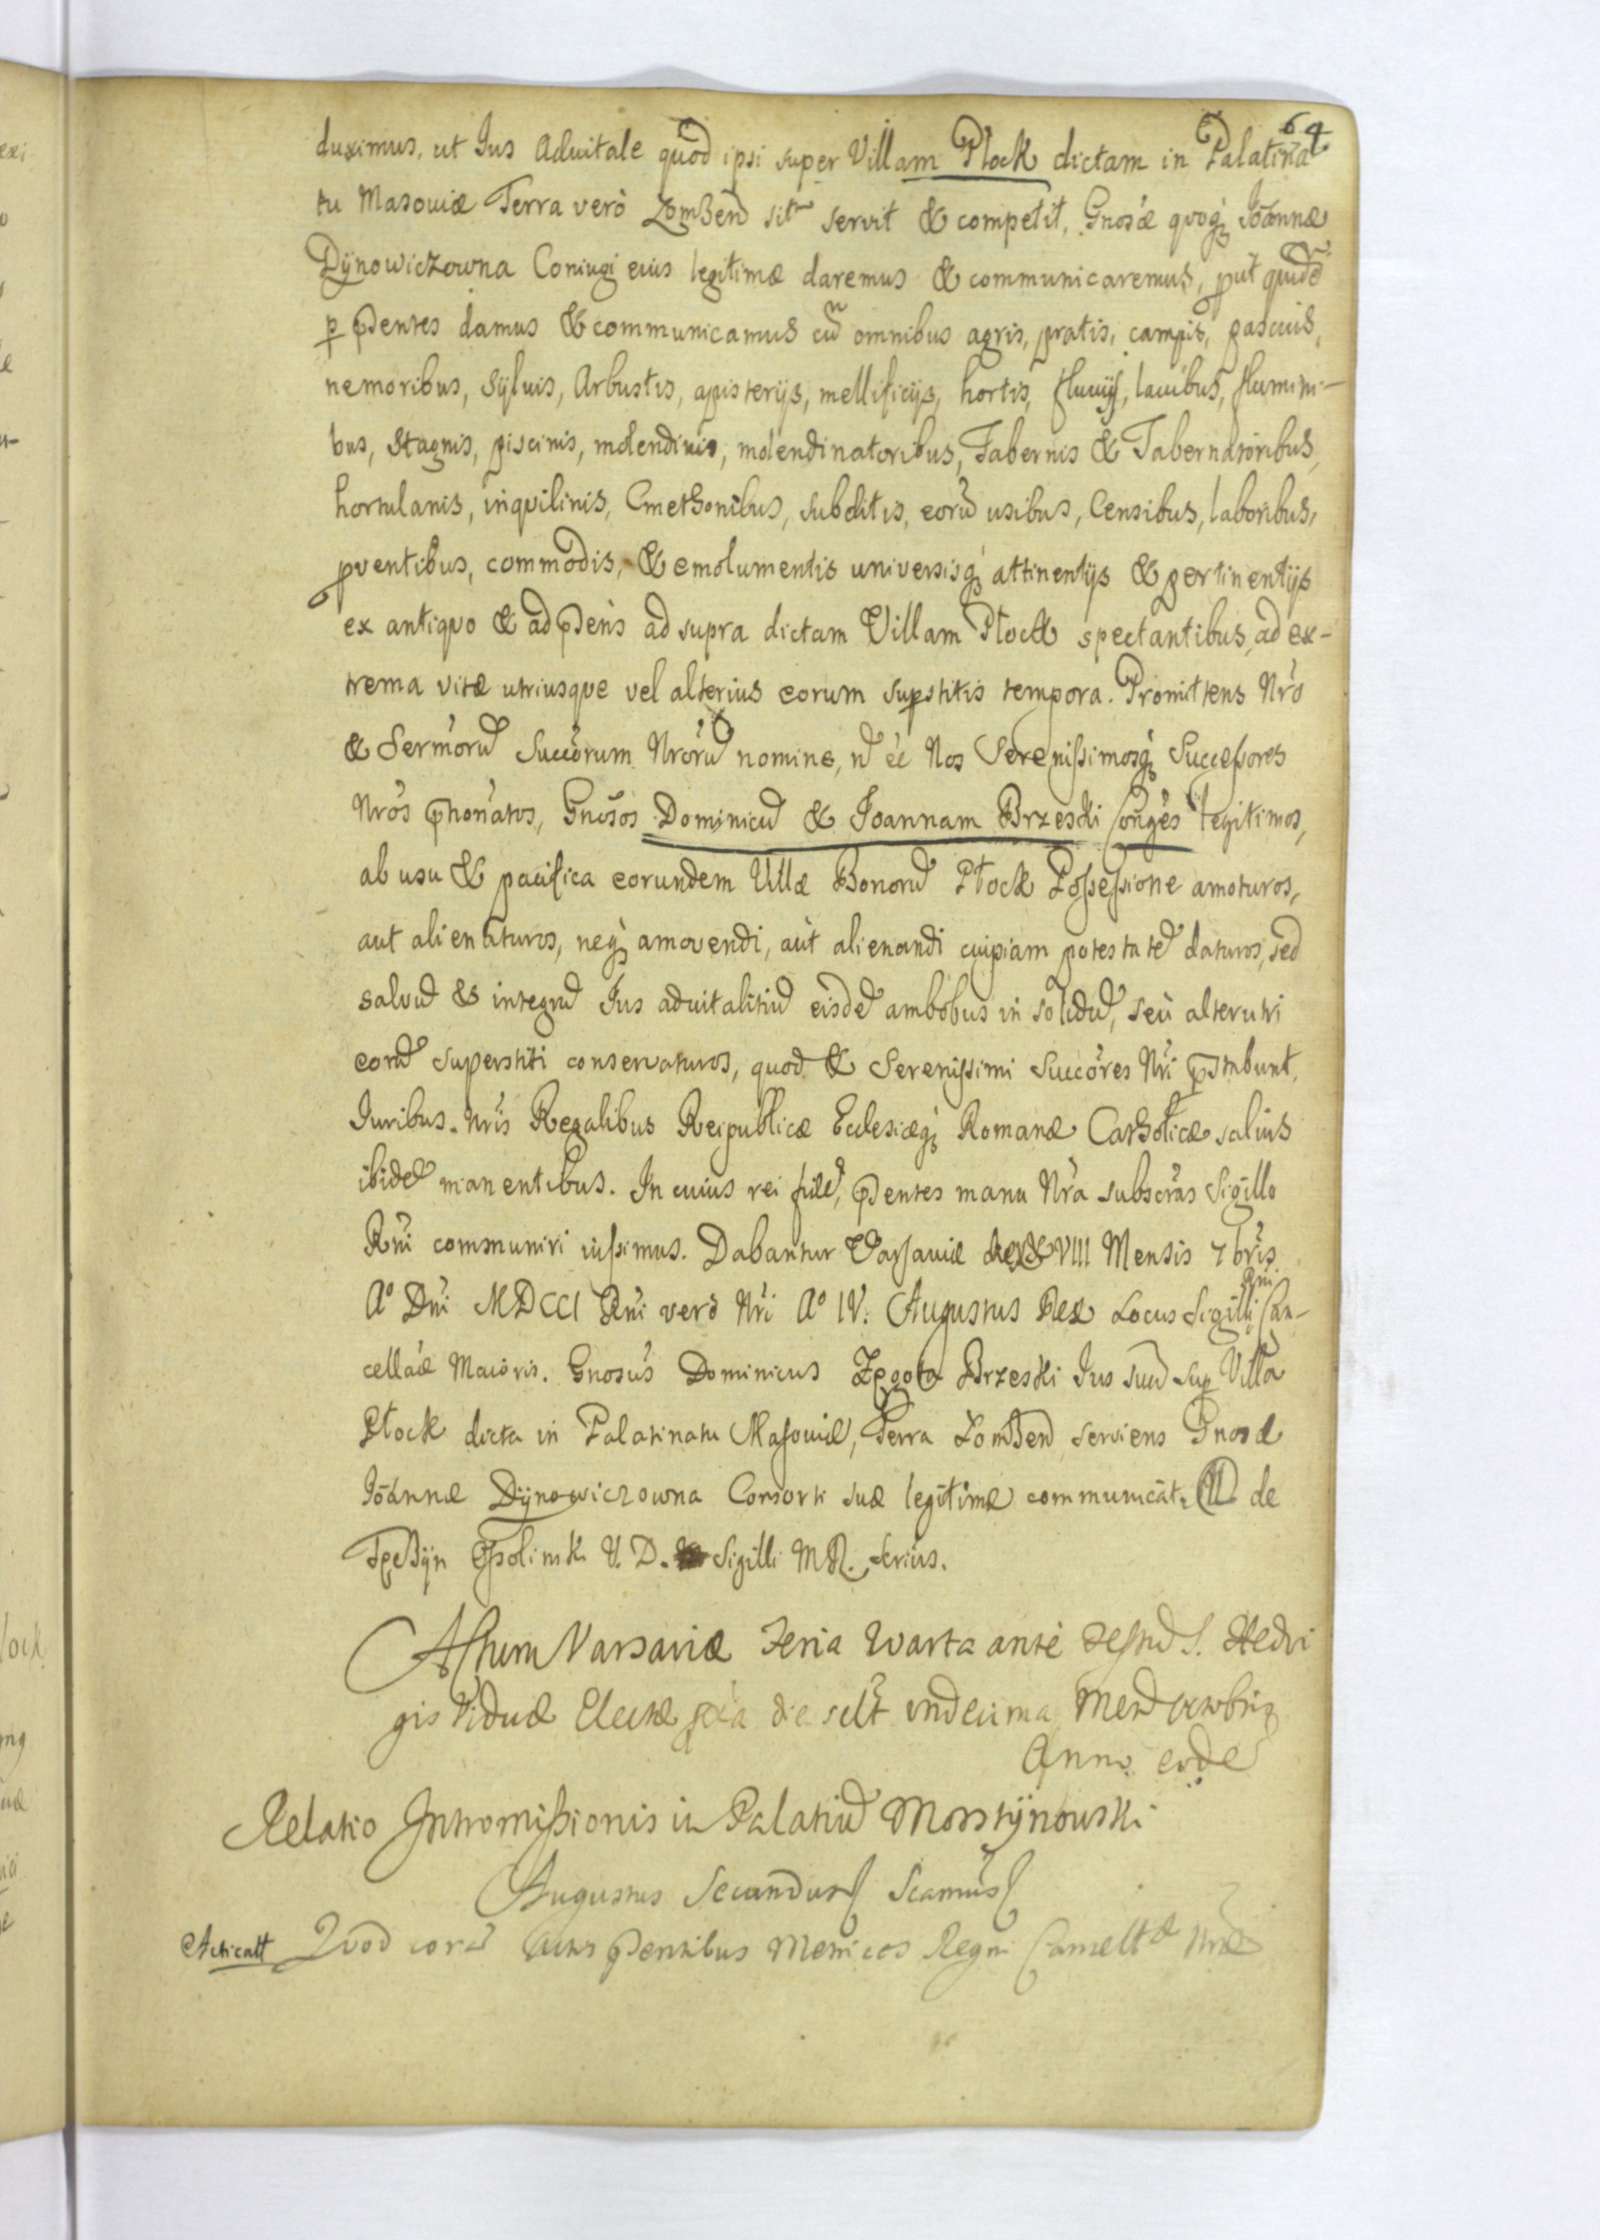 64
duximus, ut Jus Advitale quod ipsi super Villam Płock dictam in Palatina
tu Masoviæ Terra verò Łomzen sitā servit & competit, Gnosæ qvoq; Joānnæ
Dÿnowiczowna Coniugi eius legitimæ daremus & communicaremus, put quidē
p pñtes damus & communicamus cū omnibus agris, pratis, campis, pascuis,
nemoribus, sÿluis, Arbustis, apisterijs, mellificijs, hortis, fluuijs, lacubus, flumini-
bus, Stagnis, piscinis, molendinis, molendinatoribus, Tabernis & Tabernatoribus,
hortulanis, inqvilinis, Cmethonibus, subditis, eorū usibus, Censibus, laboribus,
pventibus, commodis, & emolumentis universisq; attinentijs & pertinentijs
ex antiqvo & ad pñens ad supra dictam Villam Płock spectantibus, ad ex-
trema vitæ utriusque vel alterius eorum supstitis tempora. Promittens Nr̃o
& Sermorū Succorum Nrorū nomine, nō eē Nos Serenissimosq; Successores
Nros phonatos, Gnosos Dominicū & Joannam Brzeski Conges legitimos,
ab usu & pacifica eorundem Villæ Bonorū Płock Possessione amoturos,
aut alienaturos, neq; amovendi, aut alienandi cuipiam potestatē daturos, sed
salvū & integrū Jus advitalitiū eisdē ambobus in solidū, seù alterutri
eorū superstiti conservaturos, quod & Serenissimi Succores Nri pstabunt,
Juribus Nris Regalibus Reipublicæ Ecclesiæq; Romanæ Catholicæ salvis
ibidē manentibus. In cuius rei fidē, pñtes manu Nra subscras Sigillo
Rni communiri iussimus. Dabantur Varsaviæ VIII Mensis 7bris
Aº Dni MDCCI Rni verò Nri Aº IV. Augustus Rex Locus Sigilli Rni Can-
cellaæ Maioris. Gnosus Dominicus Zegota Brzeski Jus suū sup Villa
Płock dicta in Palatinatu Masoviæ, Terra Łomzen serviens Gnosæ
Joānnæ Dÿnowiczowna Consorti suæ legitimæ communicat. de
Tęczÿn Ossolinsk. Sigilli MR. Scrius.
Actum Varsaviæ Feria Qvarta antè Festū S. Hedvi
gis Viduæ Electæ pxa die scilt undecima Mens Octobris
Anno eodē
Relatio Intromissionis in Palatiū Morstÿnowski
Augustus Secundus Scamus
Acticatt Qvod corā Actis pñtibus Metrices Regni Cancellæ Nræ